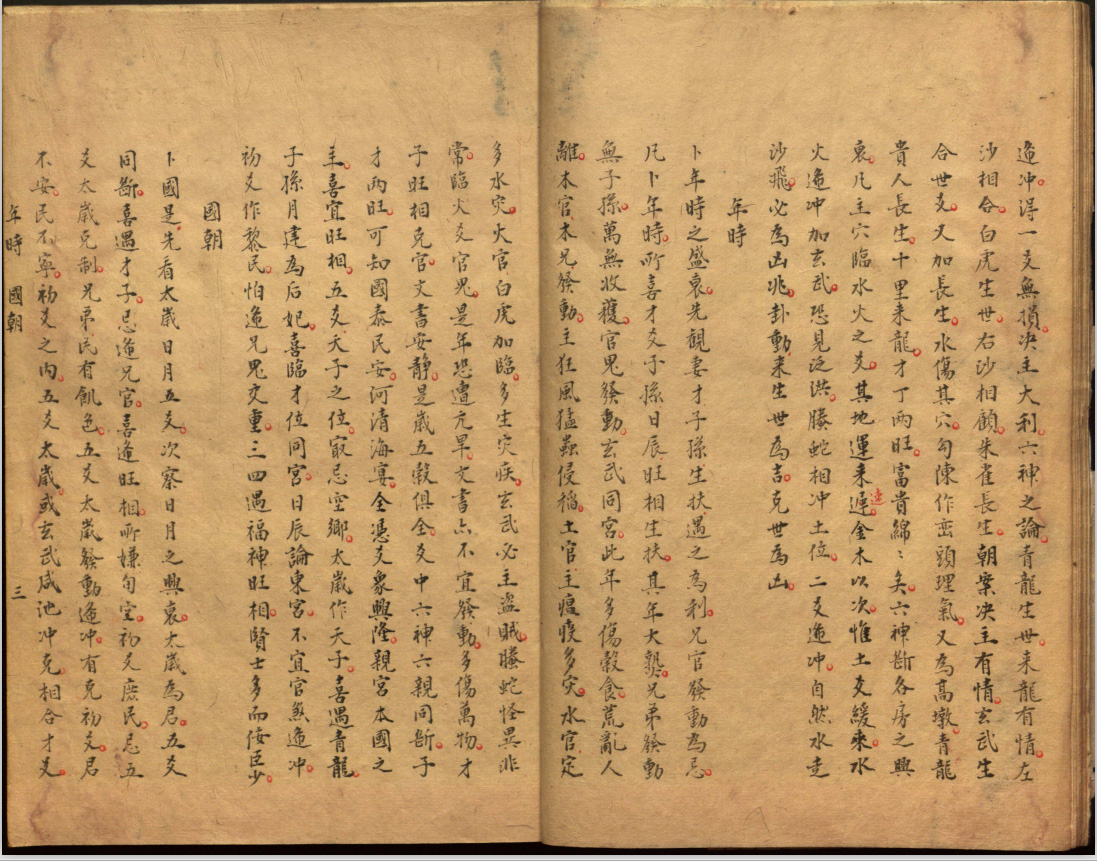 逢冲得一爻無損决主大利六神之論青龍生世来龍有情左
沙相合白虎生世右沙相顧朱雀長生朝案决主有情玄武生
合世爻又加長生水傷其穴勾陳作峦頭理氣又為高墩青龍
貴人長生十里来龍才丁两旺富貴綿〻矣六神断各房之興
衰凡主穴臨水火之爻其地運来遲速金木以次惟土爻緩来水
火逢冲加玄武恐見泛洪螣蛇相冲土位二爻逢冲自然水走
沙飛必為凶兆卦動来生世為吉克世為凶
年時
卜年時之盛衰先觀妻才子孫生扶遇之為利兄官發動為忌
凡卜年時所喜才爻子孫日辰旺相生扶其年大熟兄弟發動
無子孫萬無收穫官鬼發動玄武同宮此年多傷穀食荒亂人
離木官木兄發動主狂風猛蟲侵稲土官主瘟疫多灾水官定
多水灾火官白虎加臨多生灾疾玄武必主盗賊螣蛇怪異非
常臨火爻官鬼是年恐遭亢旱文書亦不宜發動多傷萬物才
子旺相克官文書安静是歲五穀俱全爻中六神六親同断子
才两旺可知國泰民安河清海宴全憑爻象興隆親宮本國之
主喜宜旺相五爻天子之位寂忌空鄉太歲作天子喜遇青龍
子孫月建為后妃喜臨才位同宮日辰論東宮不宜官煞逢冲
初爻作黎民怕逢兄鬼交重三四遇福神旺相賢士多而佞臣少
國朝
卜國是先看太歲日月五爻次察日月之興衰太歲為君五爻
同断喜遇才子忌逢兄官喜逢旺相所嫌旬空初爻庶民忌五
爻太歲克制兄弟民有飢色五爻太歲發動逢冲有克初爻君
不安民不寧初爻之内五爻太歲或玄武咸池冲克相合才爻
年時 國朝 三